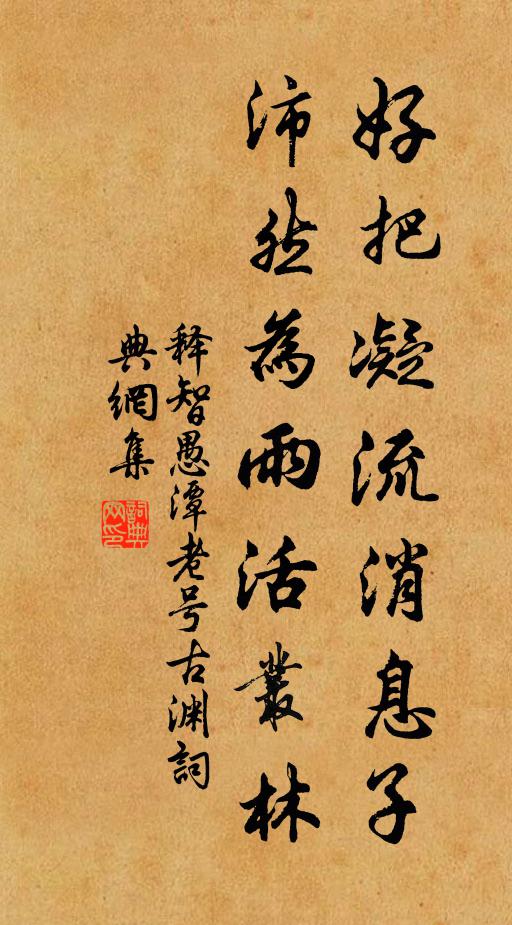 好把凝流消息子
沛然為雨活叢林
释智愚潭老号古渊詞
典網集
詞典
网印